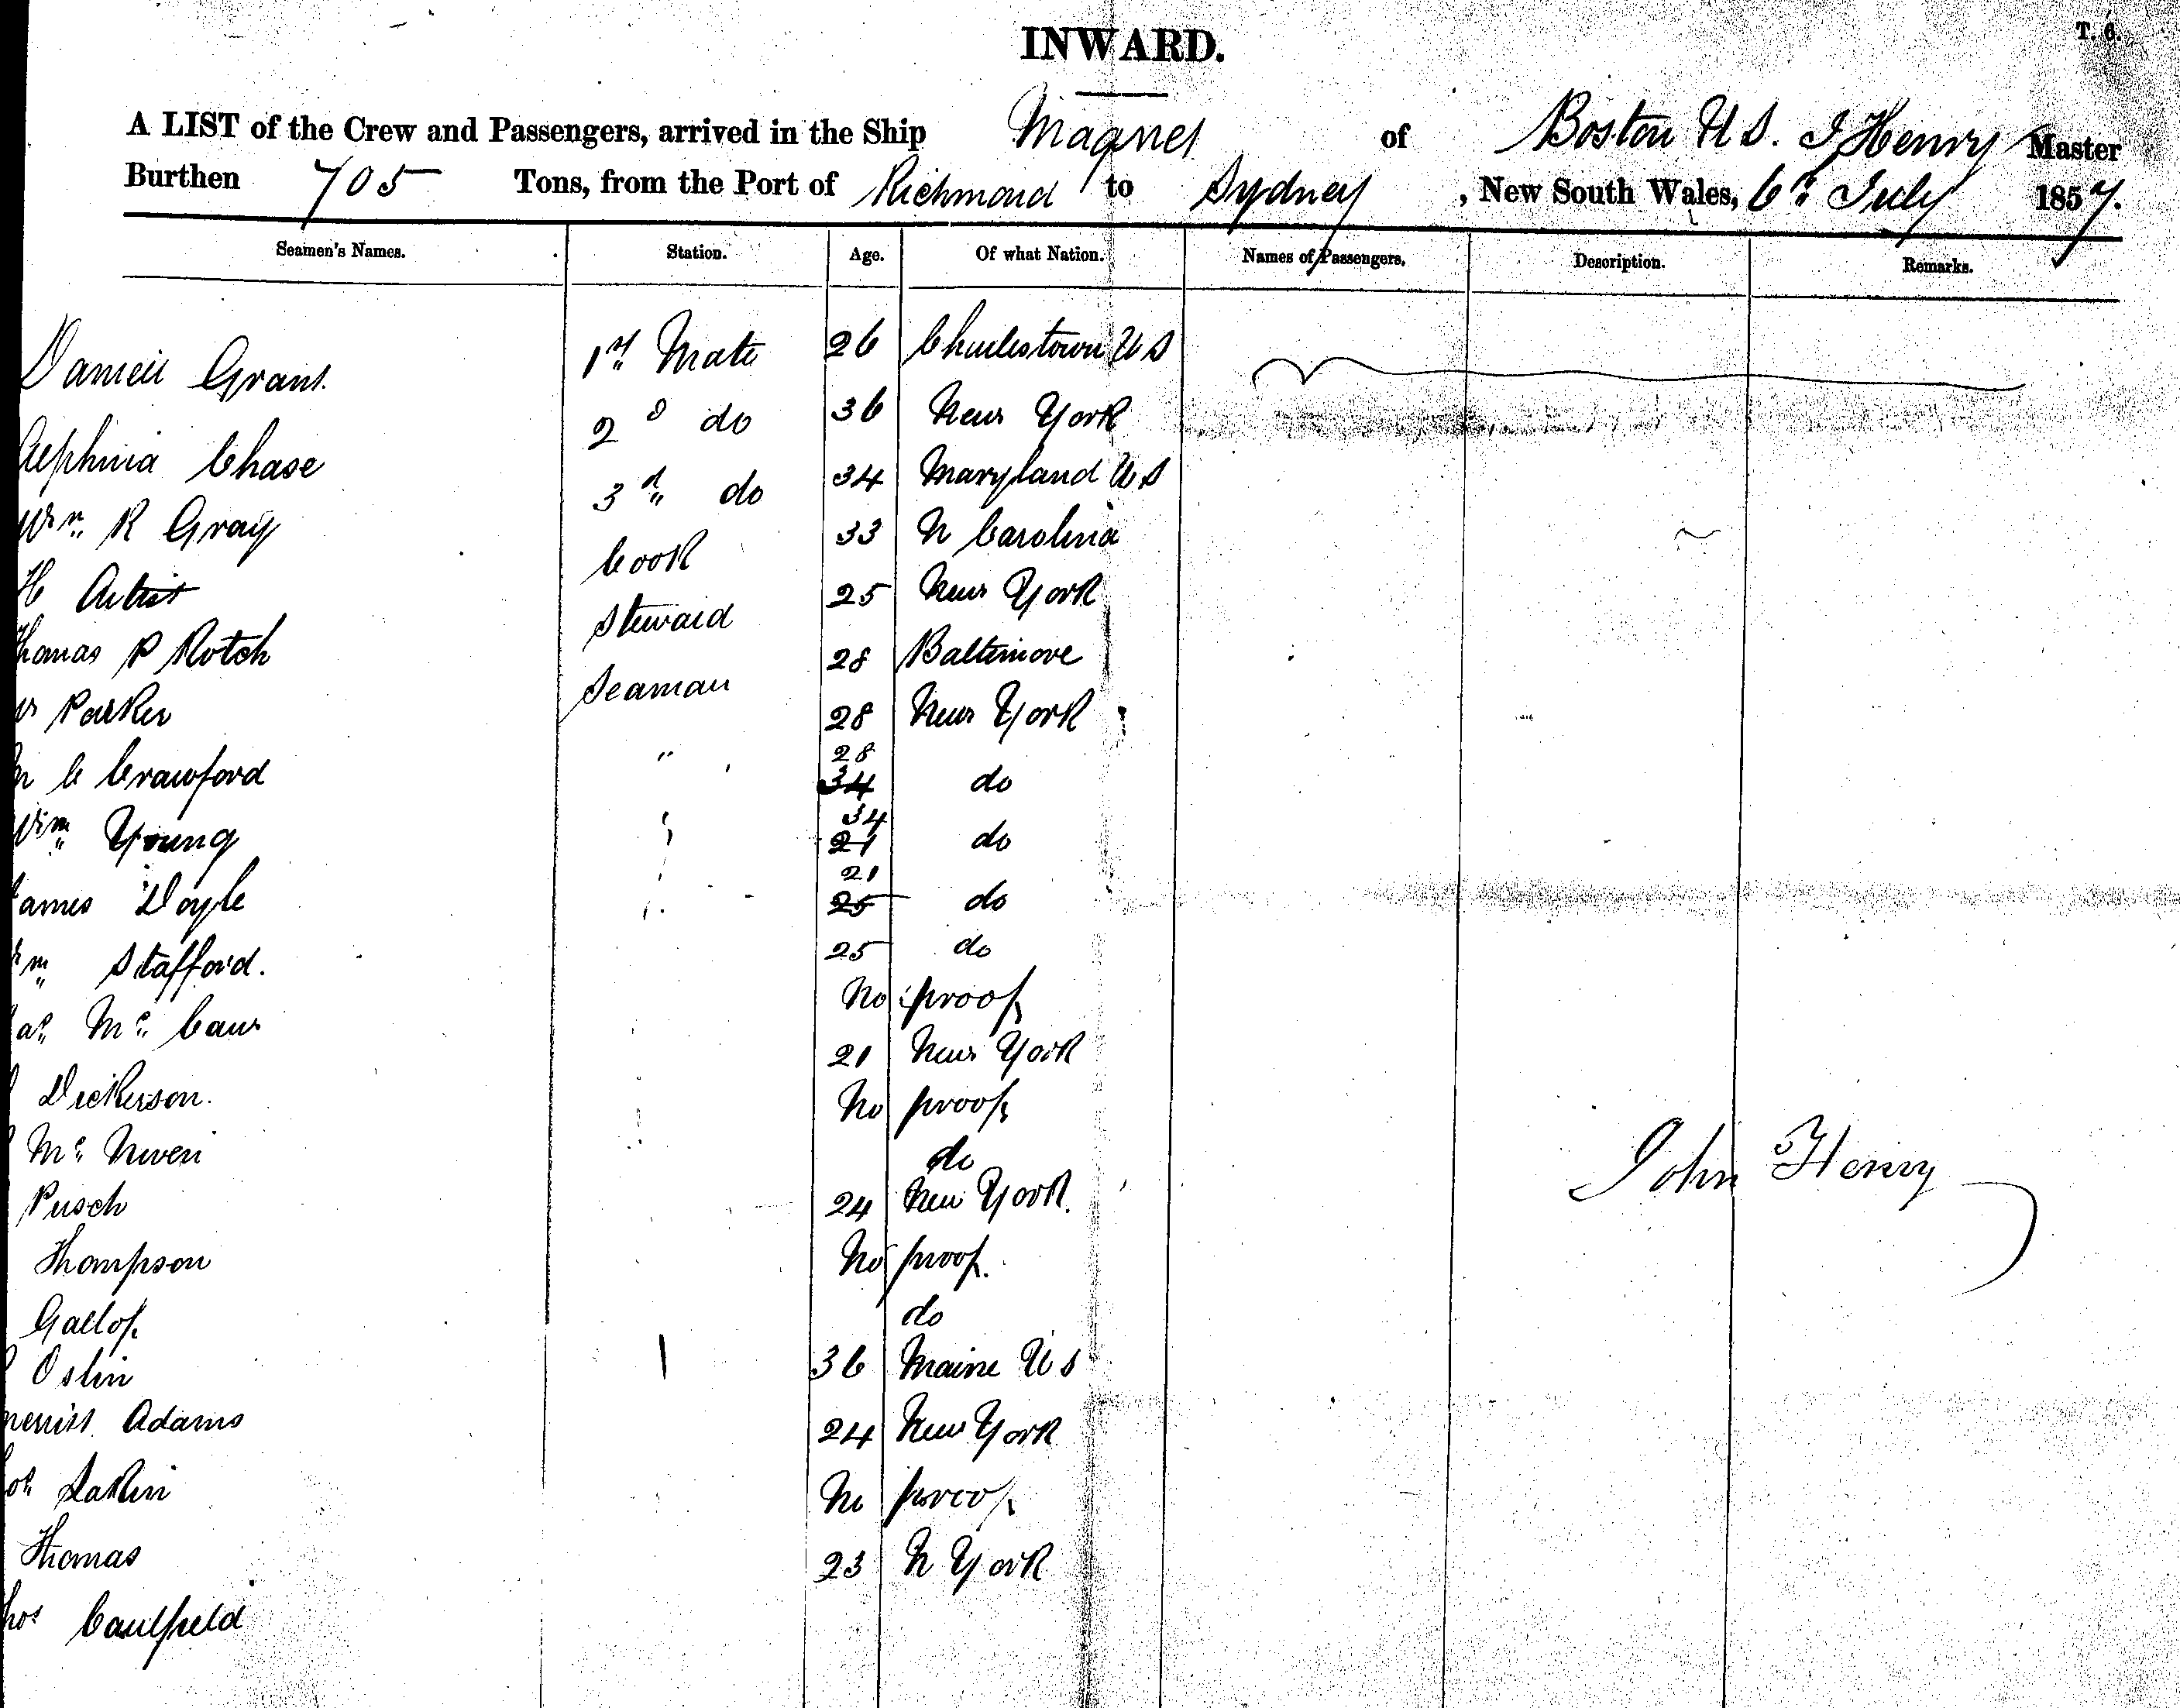 INWARD.
T. 6.
A LIST of the Crew and Passengers, arrived in the Ship Magnet of Boston U S. J Henry Master
Burthen 705 Tons, from the Port of Richmond to Sydney, New South Wales, 6th July 1857.
Seamen's Names. Station. Age. Of what Nation. Names of Passengers. Description. Remarks.
Daniell Grant 1st Mate 26 Charlestown U S
Chase 2d do 36 New York
Wm R Gray 3d do 34 Maryland U S
H Artist Cook 33 N Carolina
Thomas P Rotch Steward 25 New York
Parker Seaman 28 Baltimore
C Crawford " 28 New York
Wm Young 28 34 do
James Doyle 34 21 do
Wm Stafford. 21 25 do
Mc Caw 25 do
Dickerson. No proof
Mc Niven 21 New York
Pusch No proof
Thompson do
Gallop 24 New York.
Oslin No proof.
Adams do
Lakin 36 Maine U S
Thomas 24 New York
Thos Caulfield No proof
23 N York
John Henry